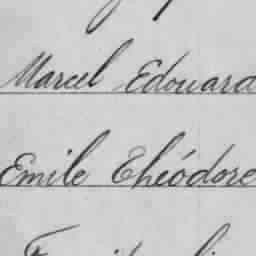 Marcel Edouard
Emile Théodore